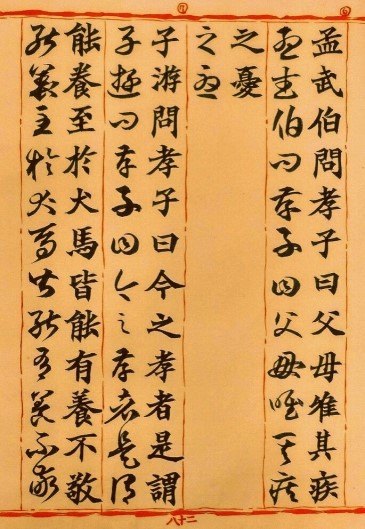 孟武伯問孝子曰父母唯其疾
孟武伯問孝子曰父母唯其疾
之憂
之憂
子游問孝子曰今之孝者是謂
子游問孝子曰今之孝者是謂
能養至於犬馬皆能有養不敬
能養至於犬馬皆能有養不敬
八十二